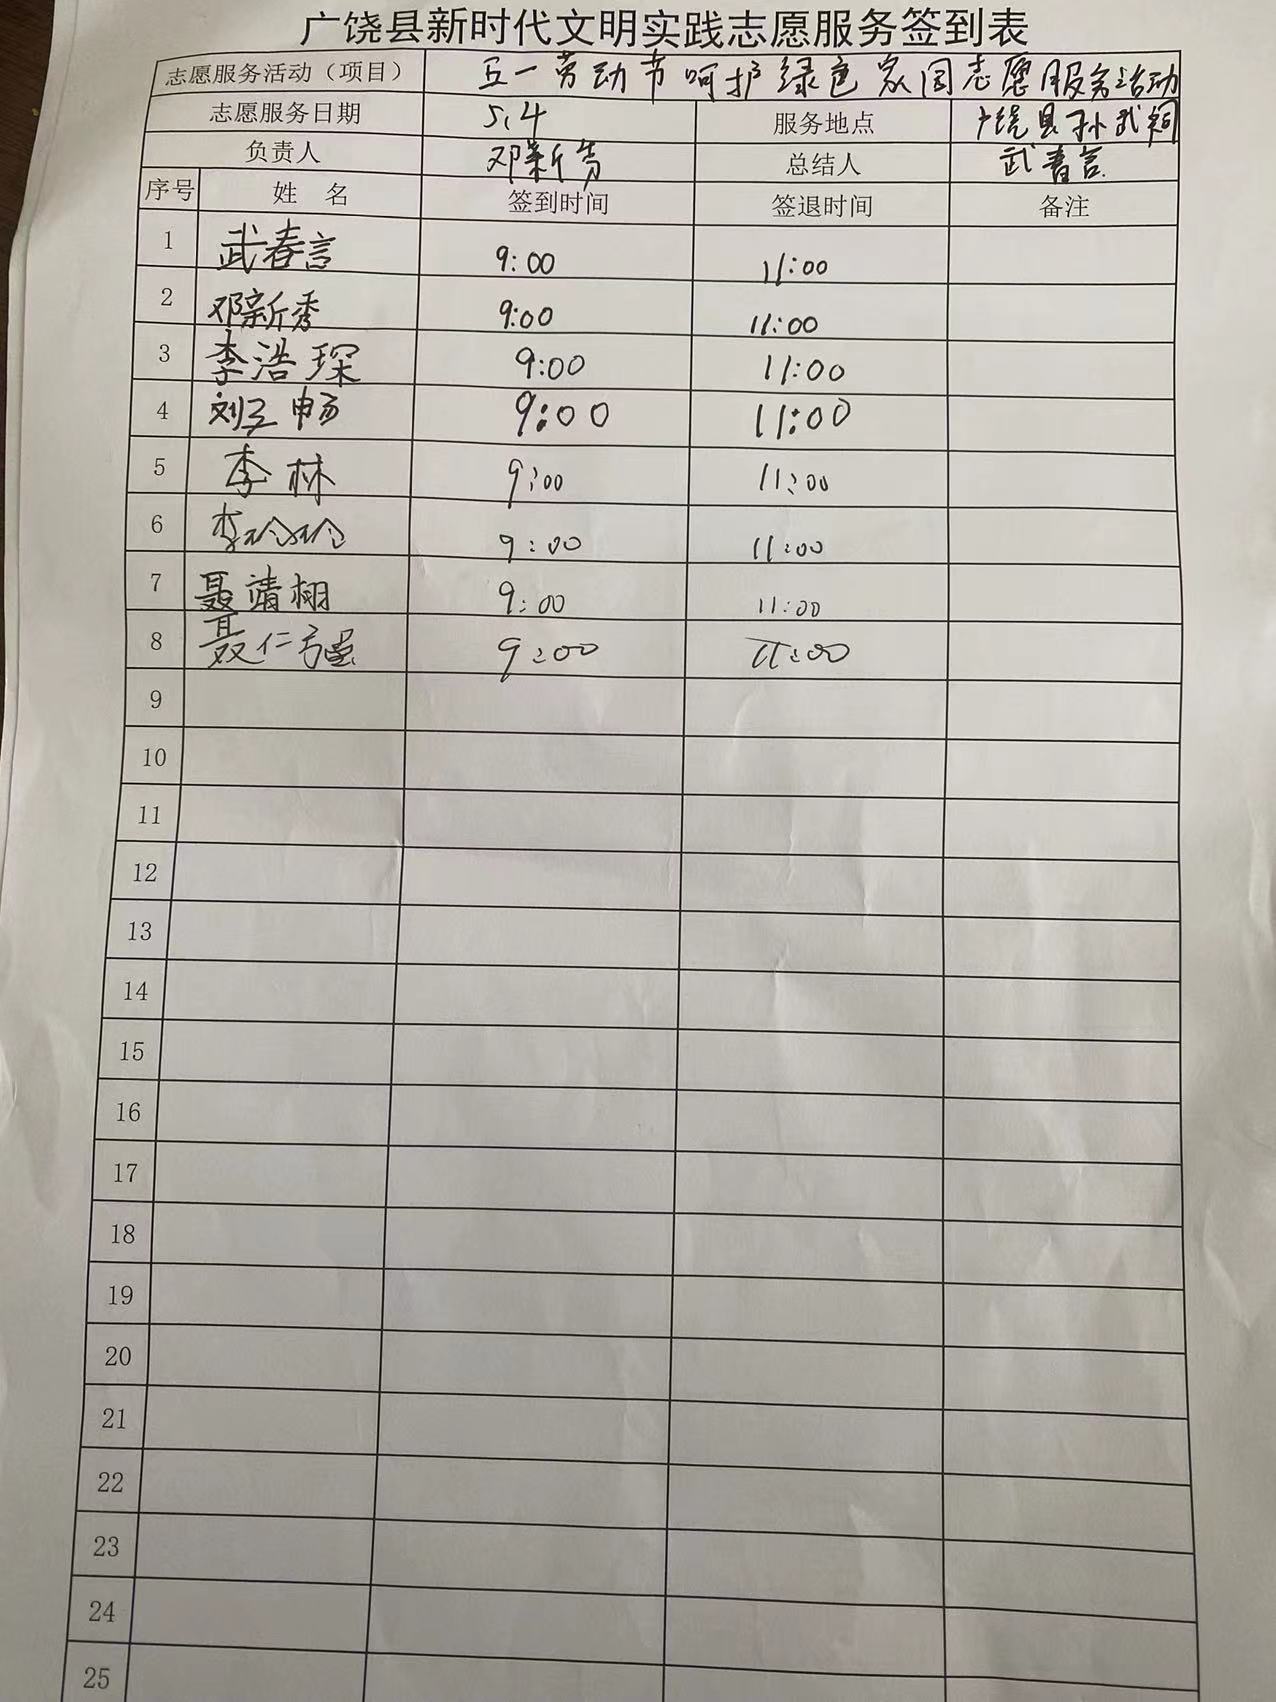 广饶县新时代文明实践志愿服务签到表
志愿服务活动（项目） 五一劳动节呵护绿色家园志愿服务活动
志愿服务日期 5.4 服务地点 广饶县孙武祠
负责人 邓新秀 总结人 武春言
序号 姓名 签到时间 签退时间 备注
1 武春言 9:00 11:00
2 邓新秀 9:00 11:00
3 李浩琛 9:00 11:00
4 刘玉畅 9:00 11:00
5 李林 9:00 11:00
6 李玲玲 9:00 11:00
7 聂靖栩 9:00 11:00
8 聂仁 9:00 11:00
9
10
11
12
13
14
15
16
17
18
19
20
21
22
23
24
25